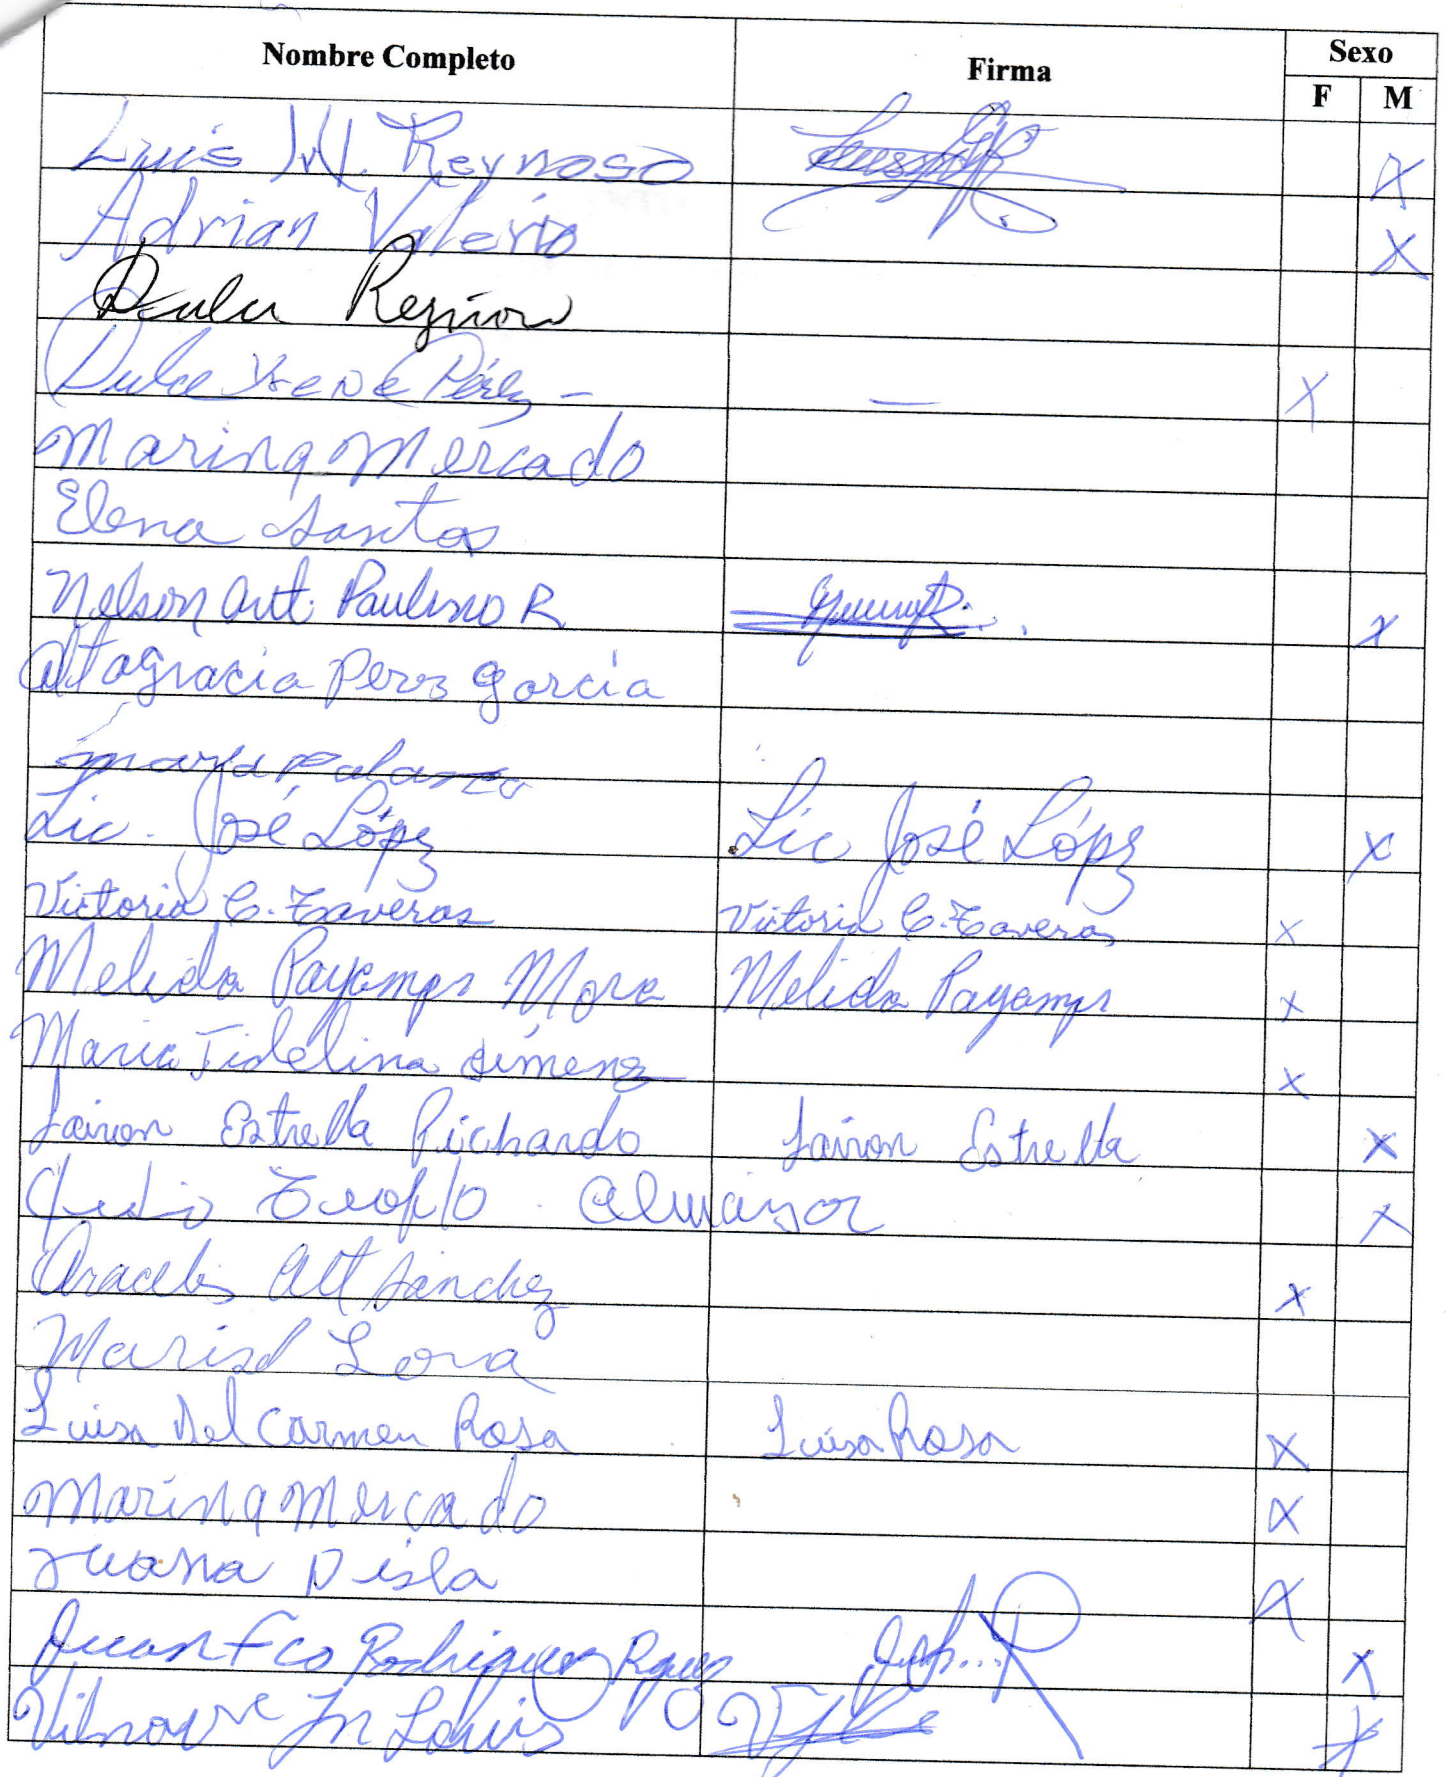 Nombre Completo Firma Sexo
F M
Luis M. Reynoso X
Adrian Valerio X
Dulce Irene Pérez - — X
Marina Mercado
Elena Santos
Nelson Ant. Paulino R X
Altagracia Perez Garcia
Maria
Lic. José López Lic José López X
Victoria C. Taveras Victoria C. Taveras X
Melida Payamps Mora Melida Payamps X
Maria Fidelina Jimenez X
Jairon Estrella Pichardo Jairon Estrella X
Julio Teofilo Almanzar X
Aracelis Alt Sánchez X
Marisol Lora
Luisa Del Carmen Rosa Luisa Rosa X
Marina Mercado X
Juana Disla X
Juan Fco Rodriguez Rguez X
Jn Louis X